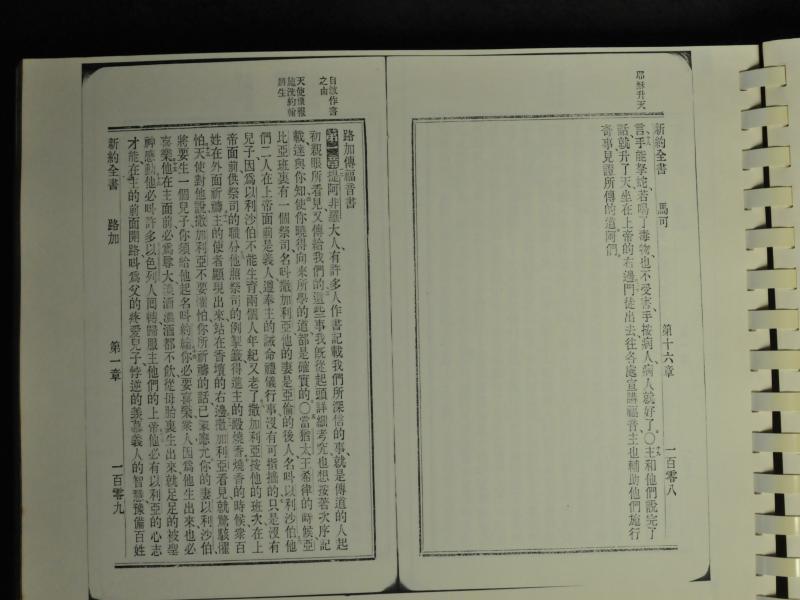 耶穌升天
新約全書　馬可　第十六章　一百零八
言、手能拏蛇、若喝了毒物、也不受害、手按病人、病人就好了。〇主和他們說完了
話、就升了天、坐在上帝的右邊、門徒出去、往各處宣講福音、主也輔助他們、施行
奇事、見證所傳的道、阿們。
自敘作書之由
天使預報施洗約翰將生
路加傳福音書
第一章 提阿非羅大人、有許多人作書、記載我們所深信的事、就是傳道的人、起
初親眼所看見、又傳給我們的、這些事、我既從起頭詳細考究、也想按著次序記
載、達與你知、使你曉得向來所學的道、都是確實的。〇當猶太王希律的時候、亞
比亞班裏、有一個祭司、名叫撒加利亞、他的妻是亞倫的後人、名叫以利沙伯、他
們二人在上帝面前是義人、遵奉主的誡命禮儀行事、沒有可指摘的、只是沒有
兒子、因為以利沙伯不能生育、兩個人年紀又老了、撒加利亞按他的班次、在上
帝面前供祭司的職分、他照祭司的例掣籤、得進主的殿燒香、燒香的時候、衆百
姓在外面祈禱、主的使者顯現出來、站在香壇的右邊、撒加利亞看見、就驚駭懼
怕、天使對他說、撒加利亞不要懼怕、你所祈禱的話、已蒙應允、你的妻以利沙伯
將要生一個兒子、你須給他起名叫約翰、你必要喜樂、衆人因為他生出來、也必
喜樂、他在主面前必為尊大、淡酒濃酒都不飲、從母胎裏生出來、就足足的被聖
神感動、他必叫許多以色列人回轉歸服主他們的上帝、他必有以利亞的心志
才能、在主的前面開路、叫為父的疼愛兒子、悖逆的羨慕義人的智慧、豫備百姓
新約全書　路加　第一章　一百零九